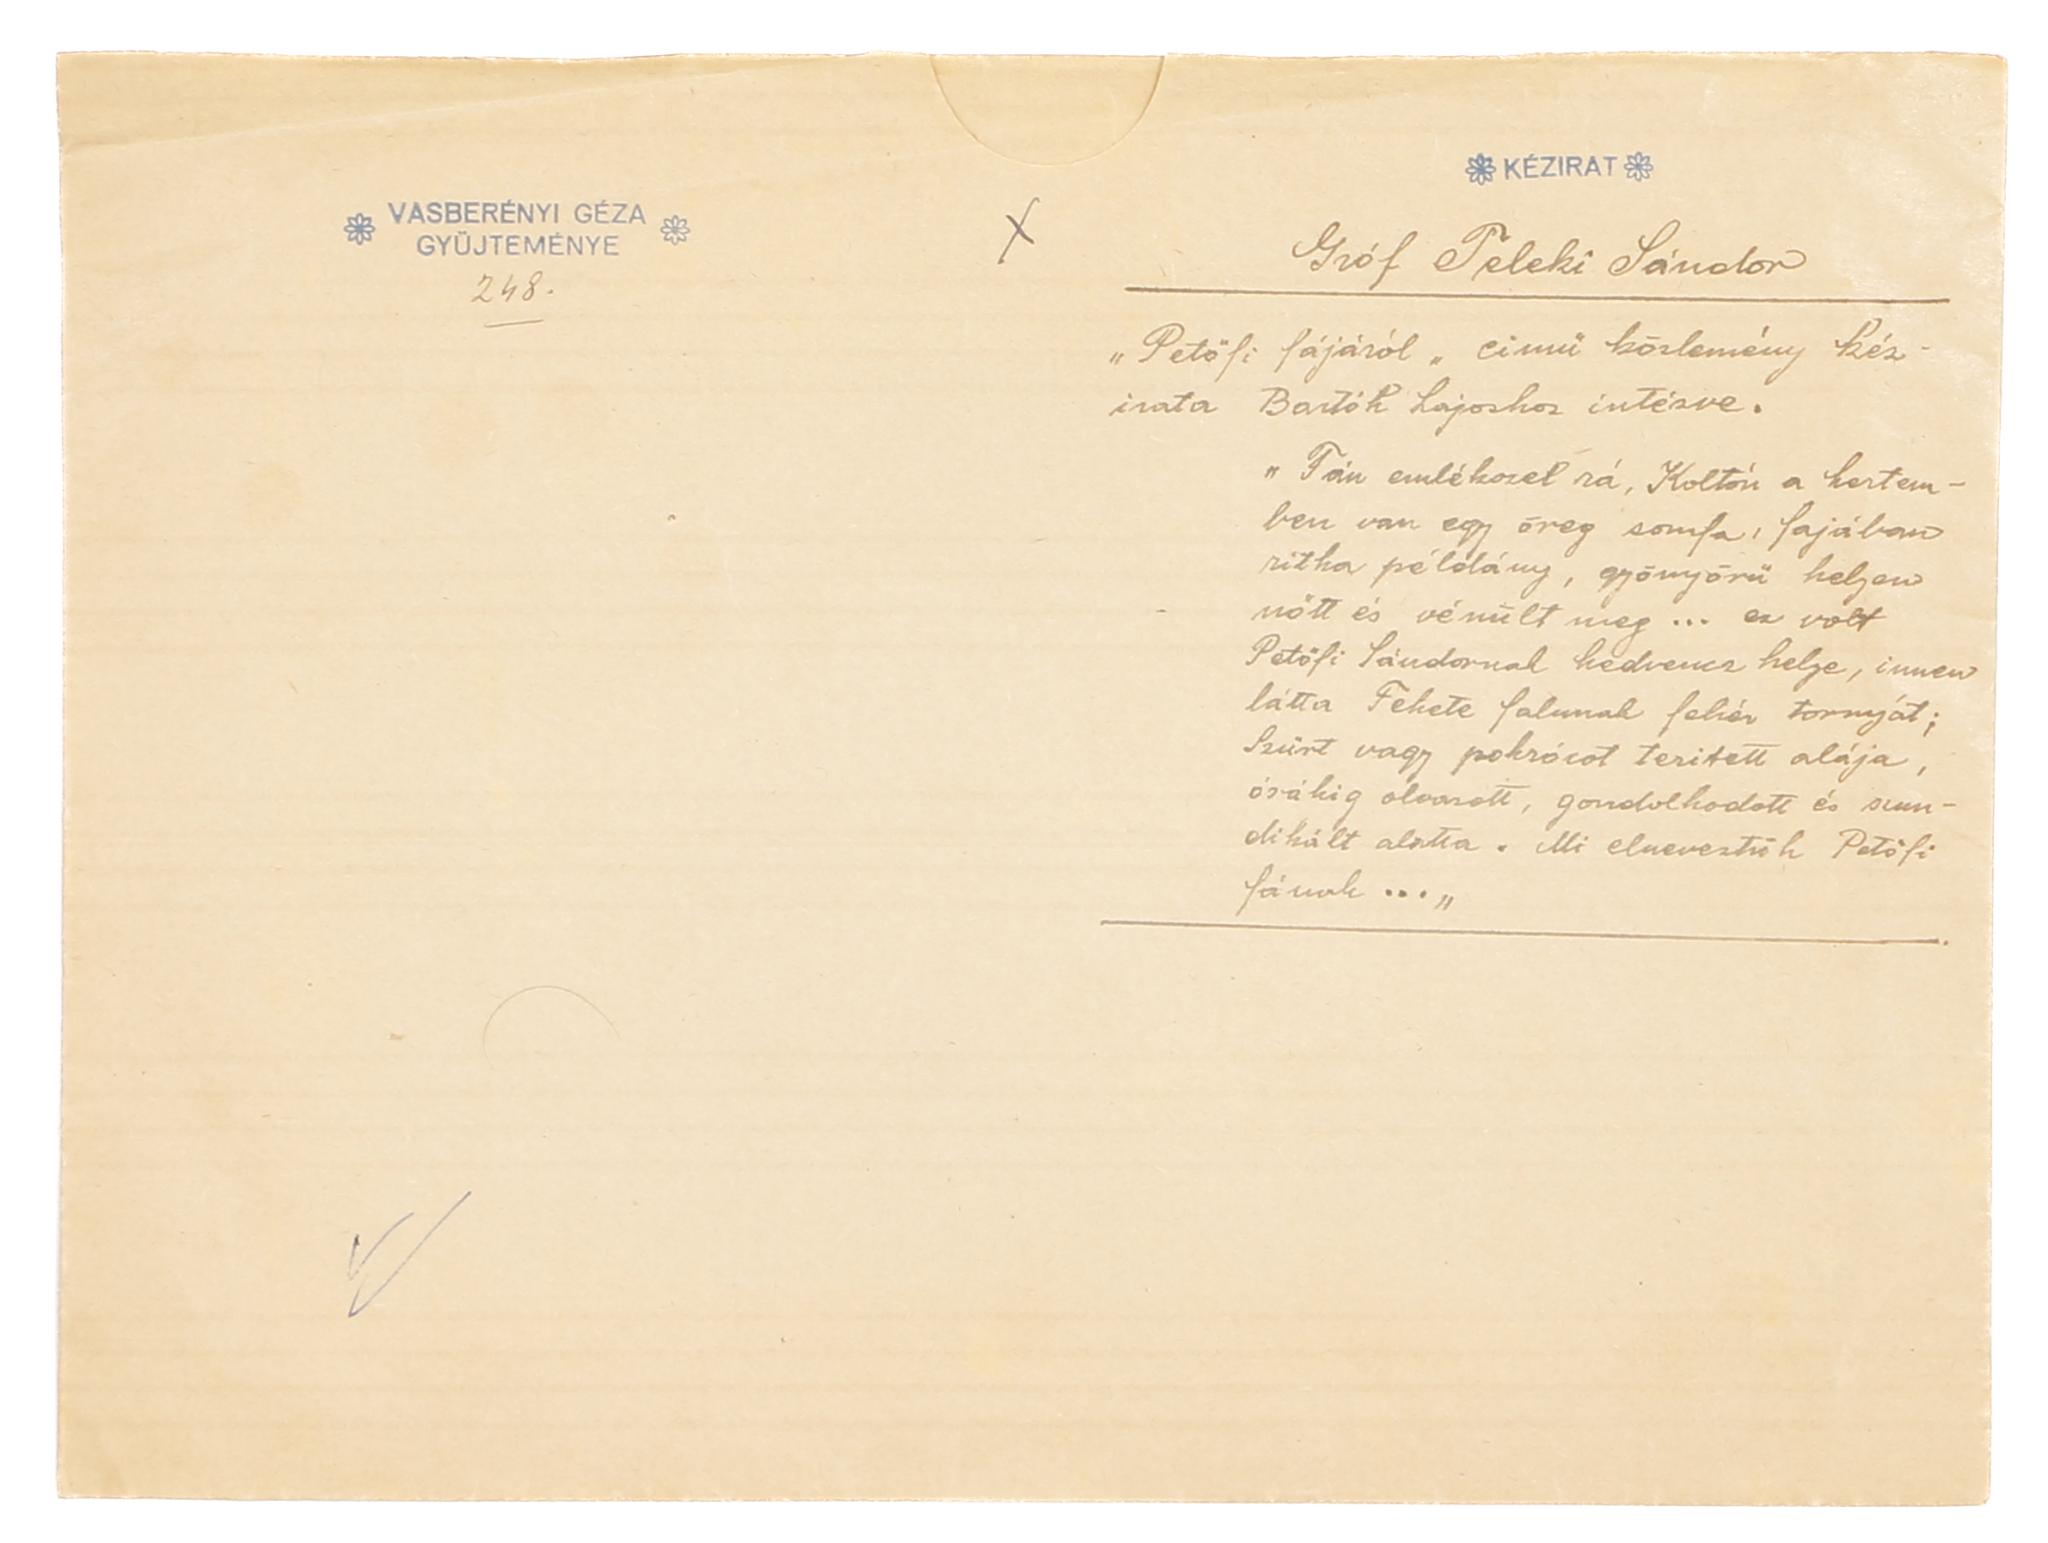 VASBERÉNYI GÉZA
GYŰJTEMÉNYE
248.
X
KÉZIRAT
Gróf Teleki Sándor
„Petőfi fájáról„ cimű közlemény kéz-
irata Bartók Lajoshoz intézve.
„Tán emlékozel rá, Koltón a kertem-
ben van egy öreg somfa, fajában
ritka példány, gyönyörű helyen
nőtt és vénült meg ... ez volt
Petőfi Sándornak kedvencz helye, innen
látta Fekete falunak fehér tornyát;
Szürt vagy pokróczot teritett alája,
órákig olvasott, gondolkodott és szun-
dikált alatta. Mi elneveztük Petőfi
fának ...„